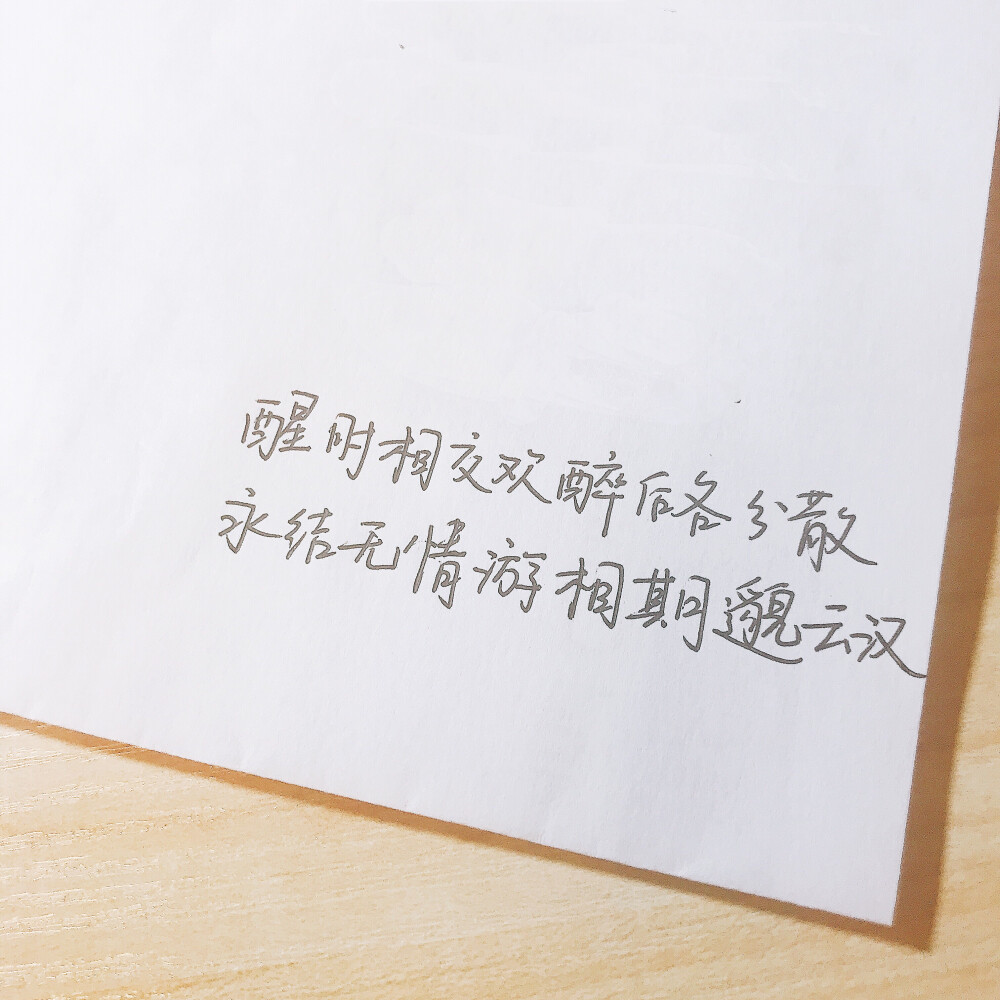 醒时相交欢醉后各分散
永结无情游相期邈云汉